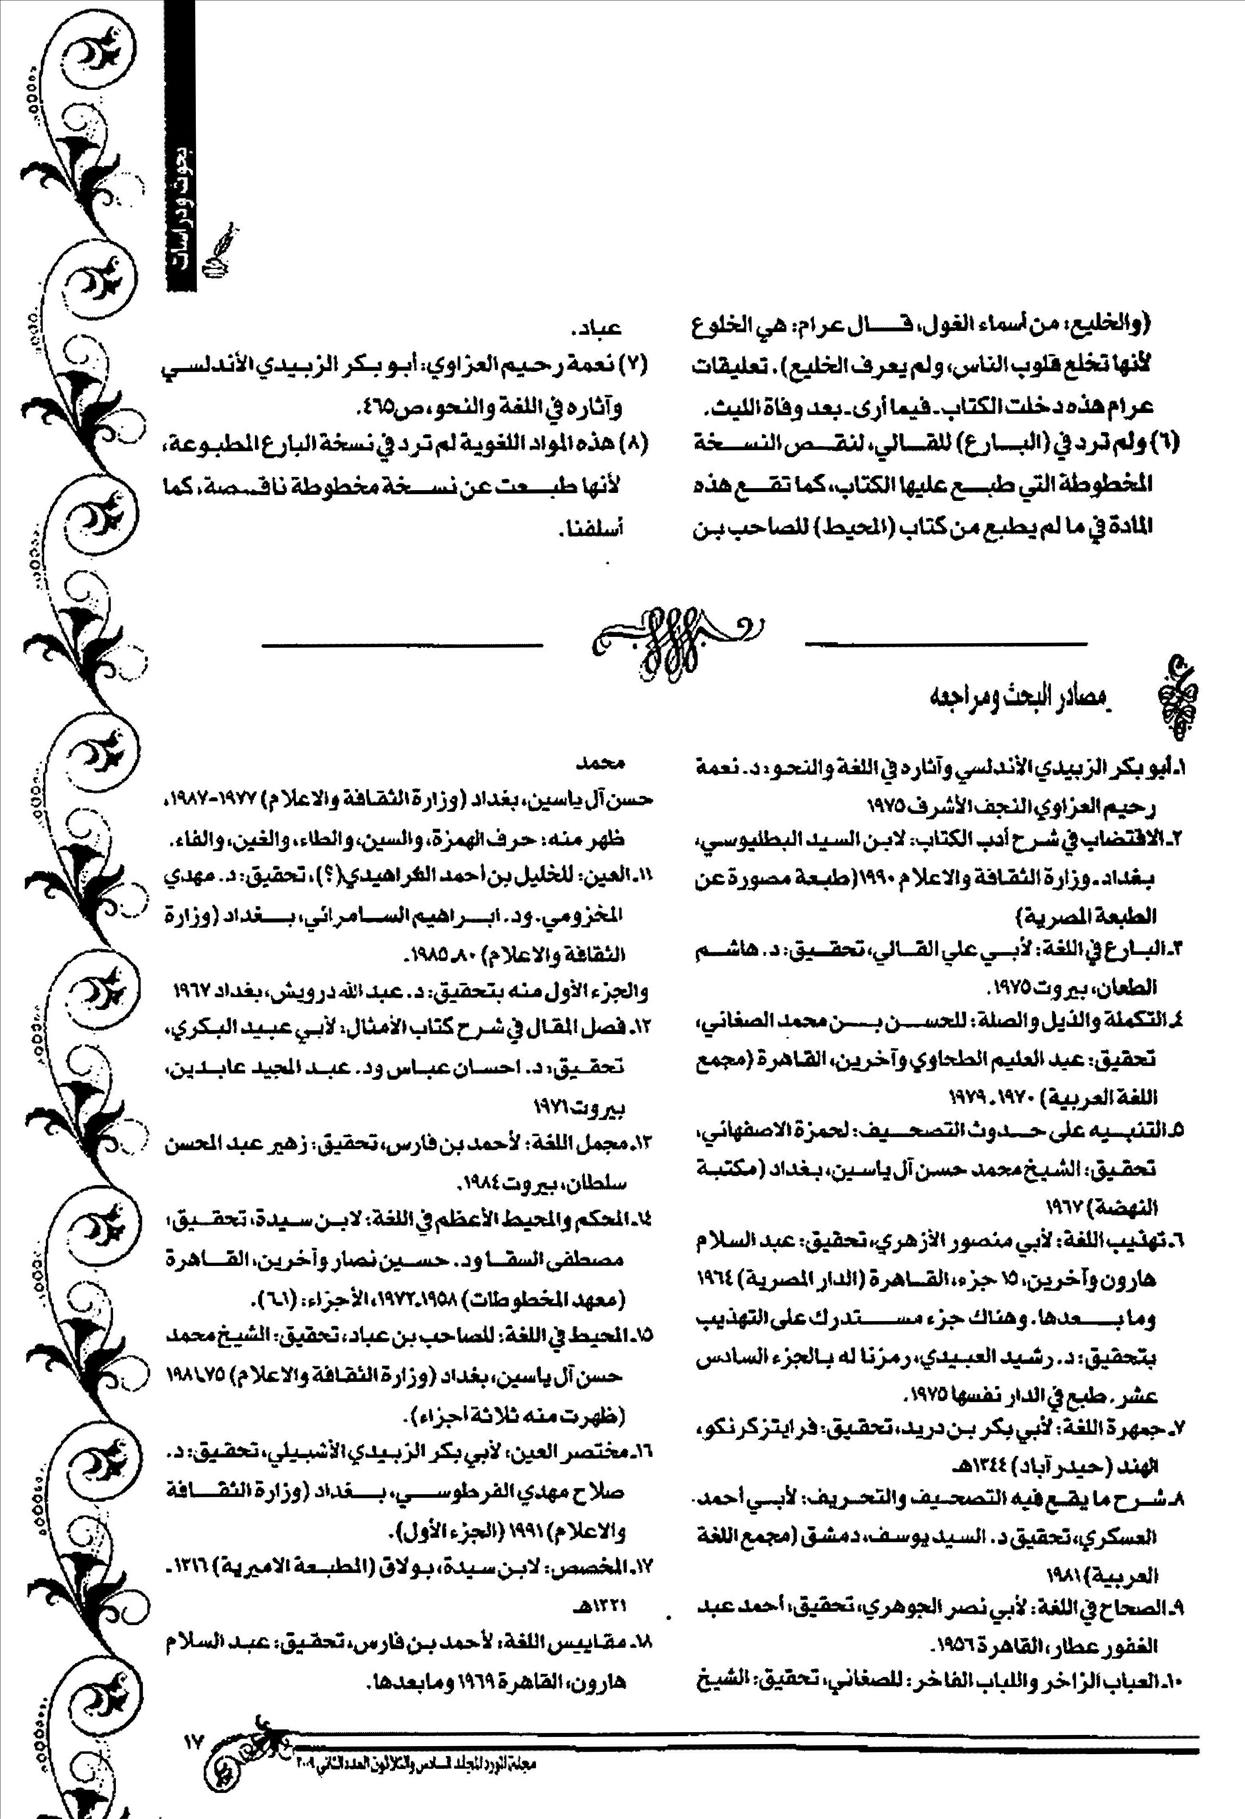 بحوث ودراسات
(والخليع: من أسماء الغول، قال عرام: هي الخلوع
لأنها تخلع قلوب الناس، ولم يعرف الخليع). تعليقات
عرام هذه دخلت الكتاب ـ فيما أرى ـ بعد وفاة الليث.
(٦) ولم ترد في (البارع) للقالي، لنقص النسخة
المخطوطة التي طبع عليها الكتاب، كما تقع هذه
المادة في ما لم يطبع من كتاب (المحيط) للصاحب بن
عباد.
(٧) نعمة رحيم العزاوي: أبو بكر الزبيدي الأندلسي
وآثاره في اللغة والنحو، ص٤٦٥.
(٨) هذه المواد اللغوية لم ترد في نسخة البارع المطبوعة،
لأنها طبعت عن نسخة مخطوطة ناقصة، كما
أسلفنا.
مصادر البحث ومراجعه
١ـ أبو بكر الزبيدي الأندلسي وآثاره في اللغة والنحو: د. نعمة
رحيم العزاوي النجف الأشرف ١٩٧٥
٢ـ الاقتضاب في شرح أدب الكتاب: لابن السيد البطليوسي،
بغداد ـ وزارة الثقافة والاعلام ١٩٩٠ (طبعة مصورة عن
الطبعة المصرية)
٣ـ البارع في اللغة: لأبي علي القالي، تحقيق: د. هاشم
الطعان، بيروت ١٩٧٥.
٤ـ التكملة والذيل والصلة: للحسن بن محمد الصغاني،
تحقيق: عبد العليم الطحاوي وآخرين، القاهرة (مجمع
اللغة العربية) ١٩٧٠ـ ١٩٧٩
٥ـ التنبيه على حدوث التصحيف: لحمزة الاصفهاني،
تحقيق: الشيخ محمد حسن آل ياسين، بغداد (مكتبة
النهضة) ١٩٦٧
٦ـ تهذيب اللغة: لأبي منصور الأزهري، تحقيق: عبد السلام
هارون وآخرين، ١٥ جزء، القاهرة (الدار المصرية) ١٩٦٤
وما بعدها. وهناك جزء مستدرك على التهذيب
بتحقيق: د. رشيد العبيدي، رمزنا له بالجزء السادس
عشر. طبع في الدار نفسها ١٩٧٥.
٧ـ جمهرة اللغة: لأبي بكر بن دريد، تحقيق: فرايتزكرنكو،
الهند (حيدر آباد) ١٣٤٤هـ
٨ـ شرح ما يقع فيه التصحيف والتحريف: لأبي أحمد
العسكري، تحقيق د. السيد يوسف، دمشق (مجمع اللغة
العربية) ١٩٨١
٩ـ الصحاح في اللغة: لأبي نصر الجوهري، تحقيق: أحمد عبد
الغفور عطار، القاهرة ١٩٥٦.
١٠ـ العباب الزاخر واللباب الفاخر: للصغاني، تحقيق: الشيخ
محمد
حسن آل ياسين، بغداد (وزارة الثقافة والاعلام) ١٩٧٧-١٩٨٧،
ظهر منه: حرف الهمزة، والسين، والطاء، والغين، والفاء.
١١ـ العين: للخليل بن أحمد الفراهيدي(؟)، تحقيق: د. مهدي
المخزومي. ود. ابراهيم السامرائي، بغداد (وزارة
الثقافة والاعلام) ٨٠ـ ١٩٨٥.
والجزء الأول منه بتحقيق: د. عبد الله درويش، بغداد ١٩٦٧
١٢ـ فصل المقال في شرح كتاب الأمثال: لأبي عبيد البكري،
تحقيق: د. احسان عباس ود. عبد المجيد عابدين،
بيروت ١٩٧١
١٣ـ مجمل اللغة: لأحمد بن فارس، تحقيق: زهير عبد المحسن
سلطان، بيروت ١٩٨٤.
١٤ـ المحكم والمحيط الأعظم في اللغة: لابن سيدة، تحقيق:
مصطفى السقا ود. حسين نصار وآخرين، القاهرة
(معهد المخطوطات) ١٩٥٨ـ١٩٧٢، الأجزاء: (١ـ٦).
١٥ـ المحيط في اللغة: للصاحب بن عباد، تحقيق: الشيخ محمد
حسن آل ياسين، بغداد (وزارة الثقافة والاعلام) ٧٥ـ١٩٨١
(ظهرت منه ثلاثة أجزاء).
١٦ـ مختصر العين: لأبي بكر الزبيدي الأشبيلي، تحقيق: د.
صلاح مهدي الفرطوسي، بغداد (وزارة الثقافة
والاعلام) ١٩٩١ (الجزء الأول).
١٧ـ المخصص: لابن سيدة، بولاق (المطبعة الاميرية) ١٣١٦ـ
١٣٢١هـ
١٨ـ مقاييس اللغة: لأحمد بن فارس، تحقيق: عبد السلام
هارون، القاهرة ١٩٦٩ وما بعدها.
١٧
مجلة المورد المجلد السادس والثلاثون العدد الثاني ٢٠٠٩